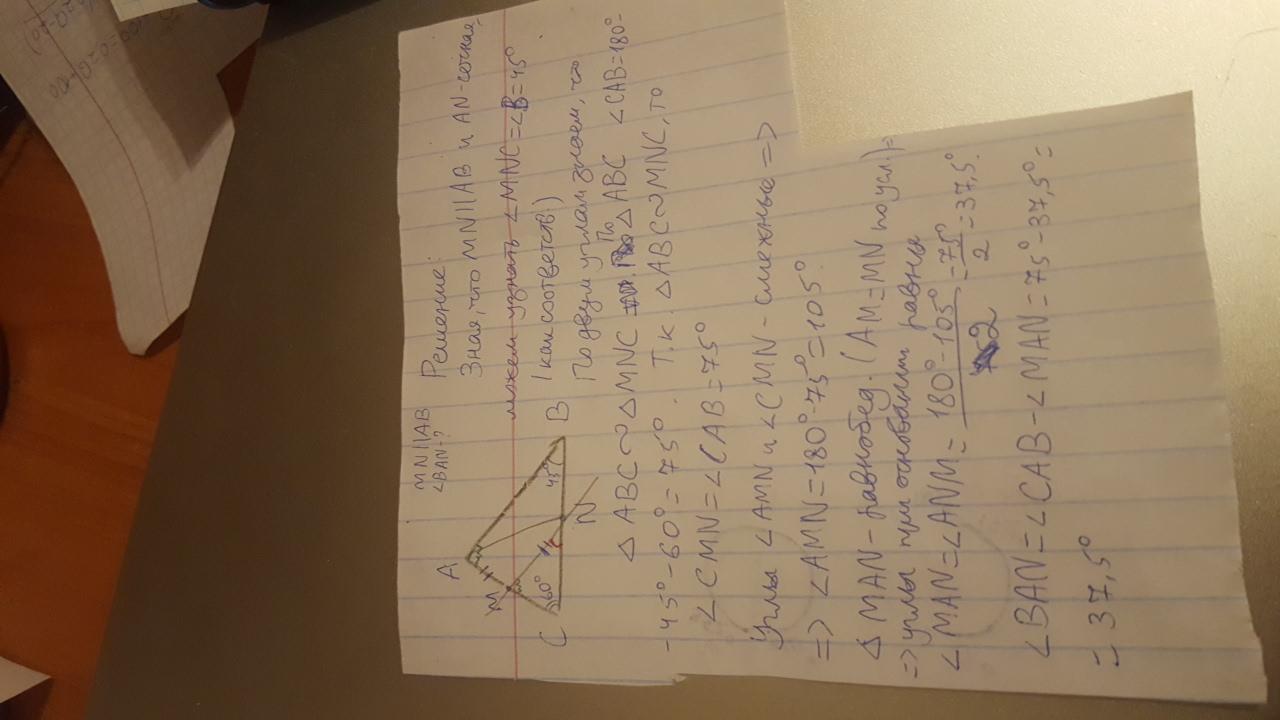 MN||AB
∠BAN-?
A
M
C
60°
45°
B
N
Решение:
Зная, что MN||AB и AN-секная,
можем узнать ∠MNC=∠B=45°
(как соответств)
По двум углам знаем, что
△ABC∾△MNC. По △ABC ∠CAB=180°-
-45°-60°=75°. Т.к. △ABC∾MNC, то
∠CMN=∠CAB=75°
Углы ∠AMN и ∠CMN-смежные =>
=> ∠AMN=180°-75°=105°
△MAN-равнобед. (AM=MN по усл.)=
=> углы при основании равны
∠MAN=∠ANM= (180°-105°)/2 = 75°/2 = 37,5°
∠BAN=∠CAB-∠MAN=75°-37,5°=
= 37,5°